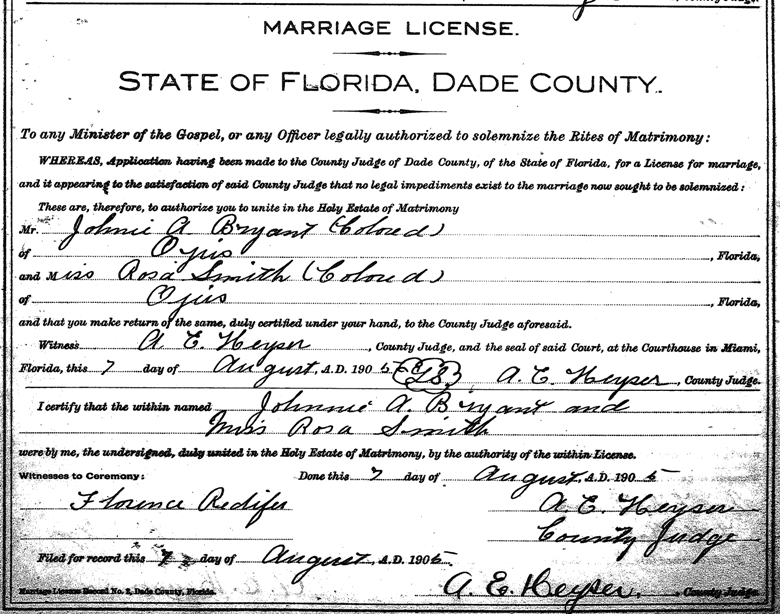 County Judge.
MARRIAGE LICENSE.
STATE OF FLORIDA, DADE COUNTY.
To any Minister of the Gospel, or any Officer legally authorized to solemnize the Rites of Matrimony:
WHEREAS, Application having been made to the County Judge of Dade County, of the State of Florida, for a License for marriage,
and it appearing to the satisfaction of said County Judge that no legal impediments exist to the marriage now sought to be solemnized:
These are, therefore, to authorize you to unite in the Holy Estate of Matrimony
Mr. Johnie A Bryant (Colored)
of Ojus, Florida,
and Miss Rosa Smith (Colored)
of Ojus, Florida,
and that you make return of the same, duly certified under your hand, to the County Judge aforesaid.
Witness A E Heyser, County Judge, and the seal of said Court, at the Courthouse in Miami,
Florida, this 7 day of August, A.D. 1905 A. E. Heyser, County Judge.
I certify that the within named Johnnie A. Bryant and
Miss Rosa Smith
were by me, the undersigned, duly united in the Holy Estate of Matrimony, by the authority of the within License.
Witnesses to Ceremony: Done this 7 day of August, A.D. 1905
Florence Redifer A. E. Heyser
County Judge
Filed for record this 7 day of August, A.D. 1905.
Marriage License Record No. 2, Dade County, Florida. A. E. Heyser, County Judge.